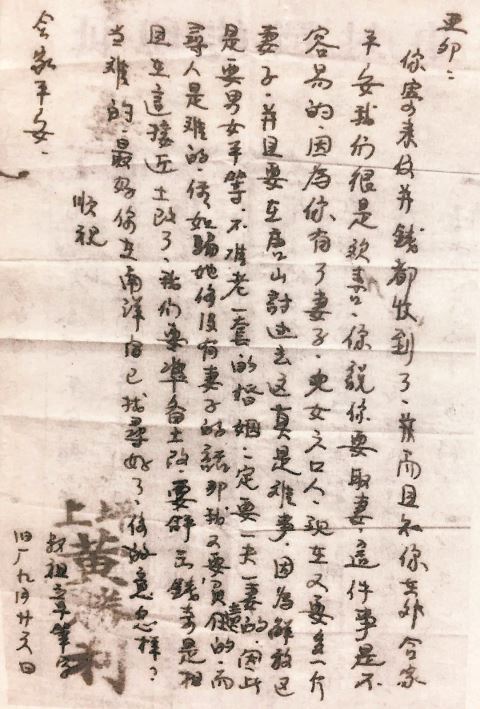 亚卯：
你寄来信并钱都收到了，并而且知你在外合家
平安我们很是欢喜，你説你要取妻，這件事是不
容易的，因為你有了妻子，兒女六口人，现在又要多一个
妻子，并且要在唐山討过去这真是难事，因為解放已
是要男女平等，不准老一套的婚姻，一定要一夫一妻的因此
尋人是难的，倘如骗她你没有妻子的話那我又要負 的，而
且在這接近土改了，我们要準备土改要 錢 是相
当难的，最好你在南洋自已找尋好了，你的意怎样？
順祝
合家平安，
上
黄勝利
叔祖 筆字
旧厂九月廿六日